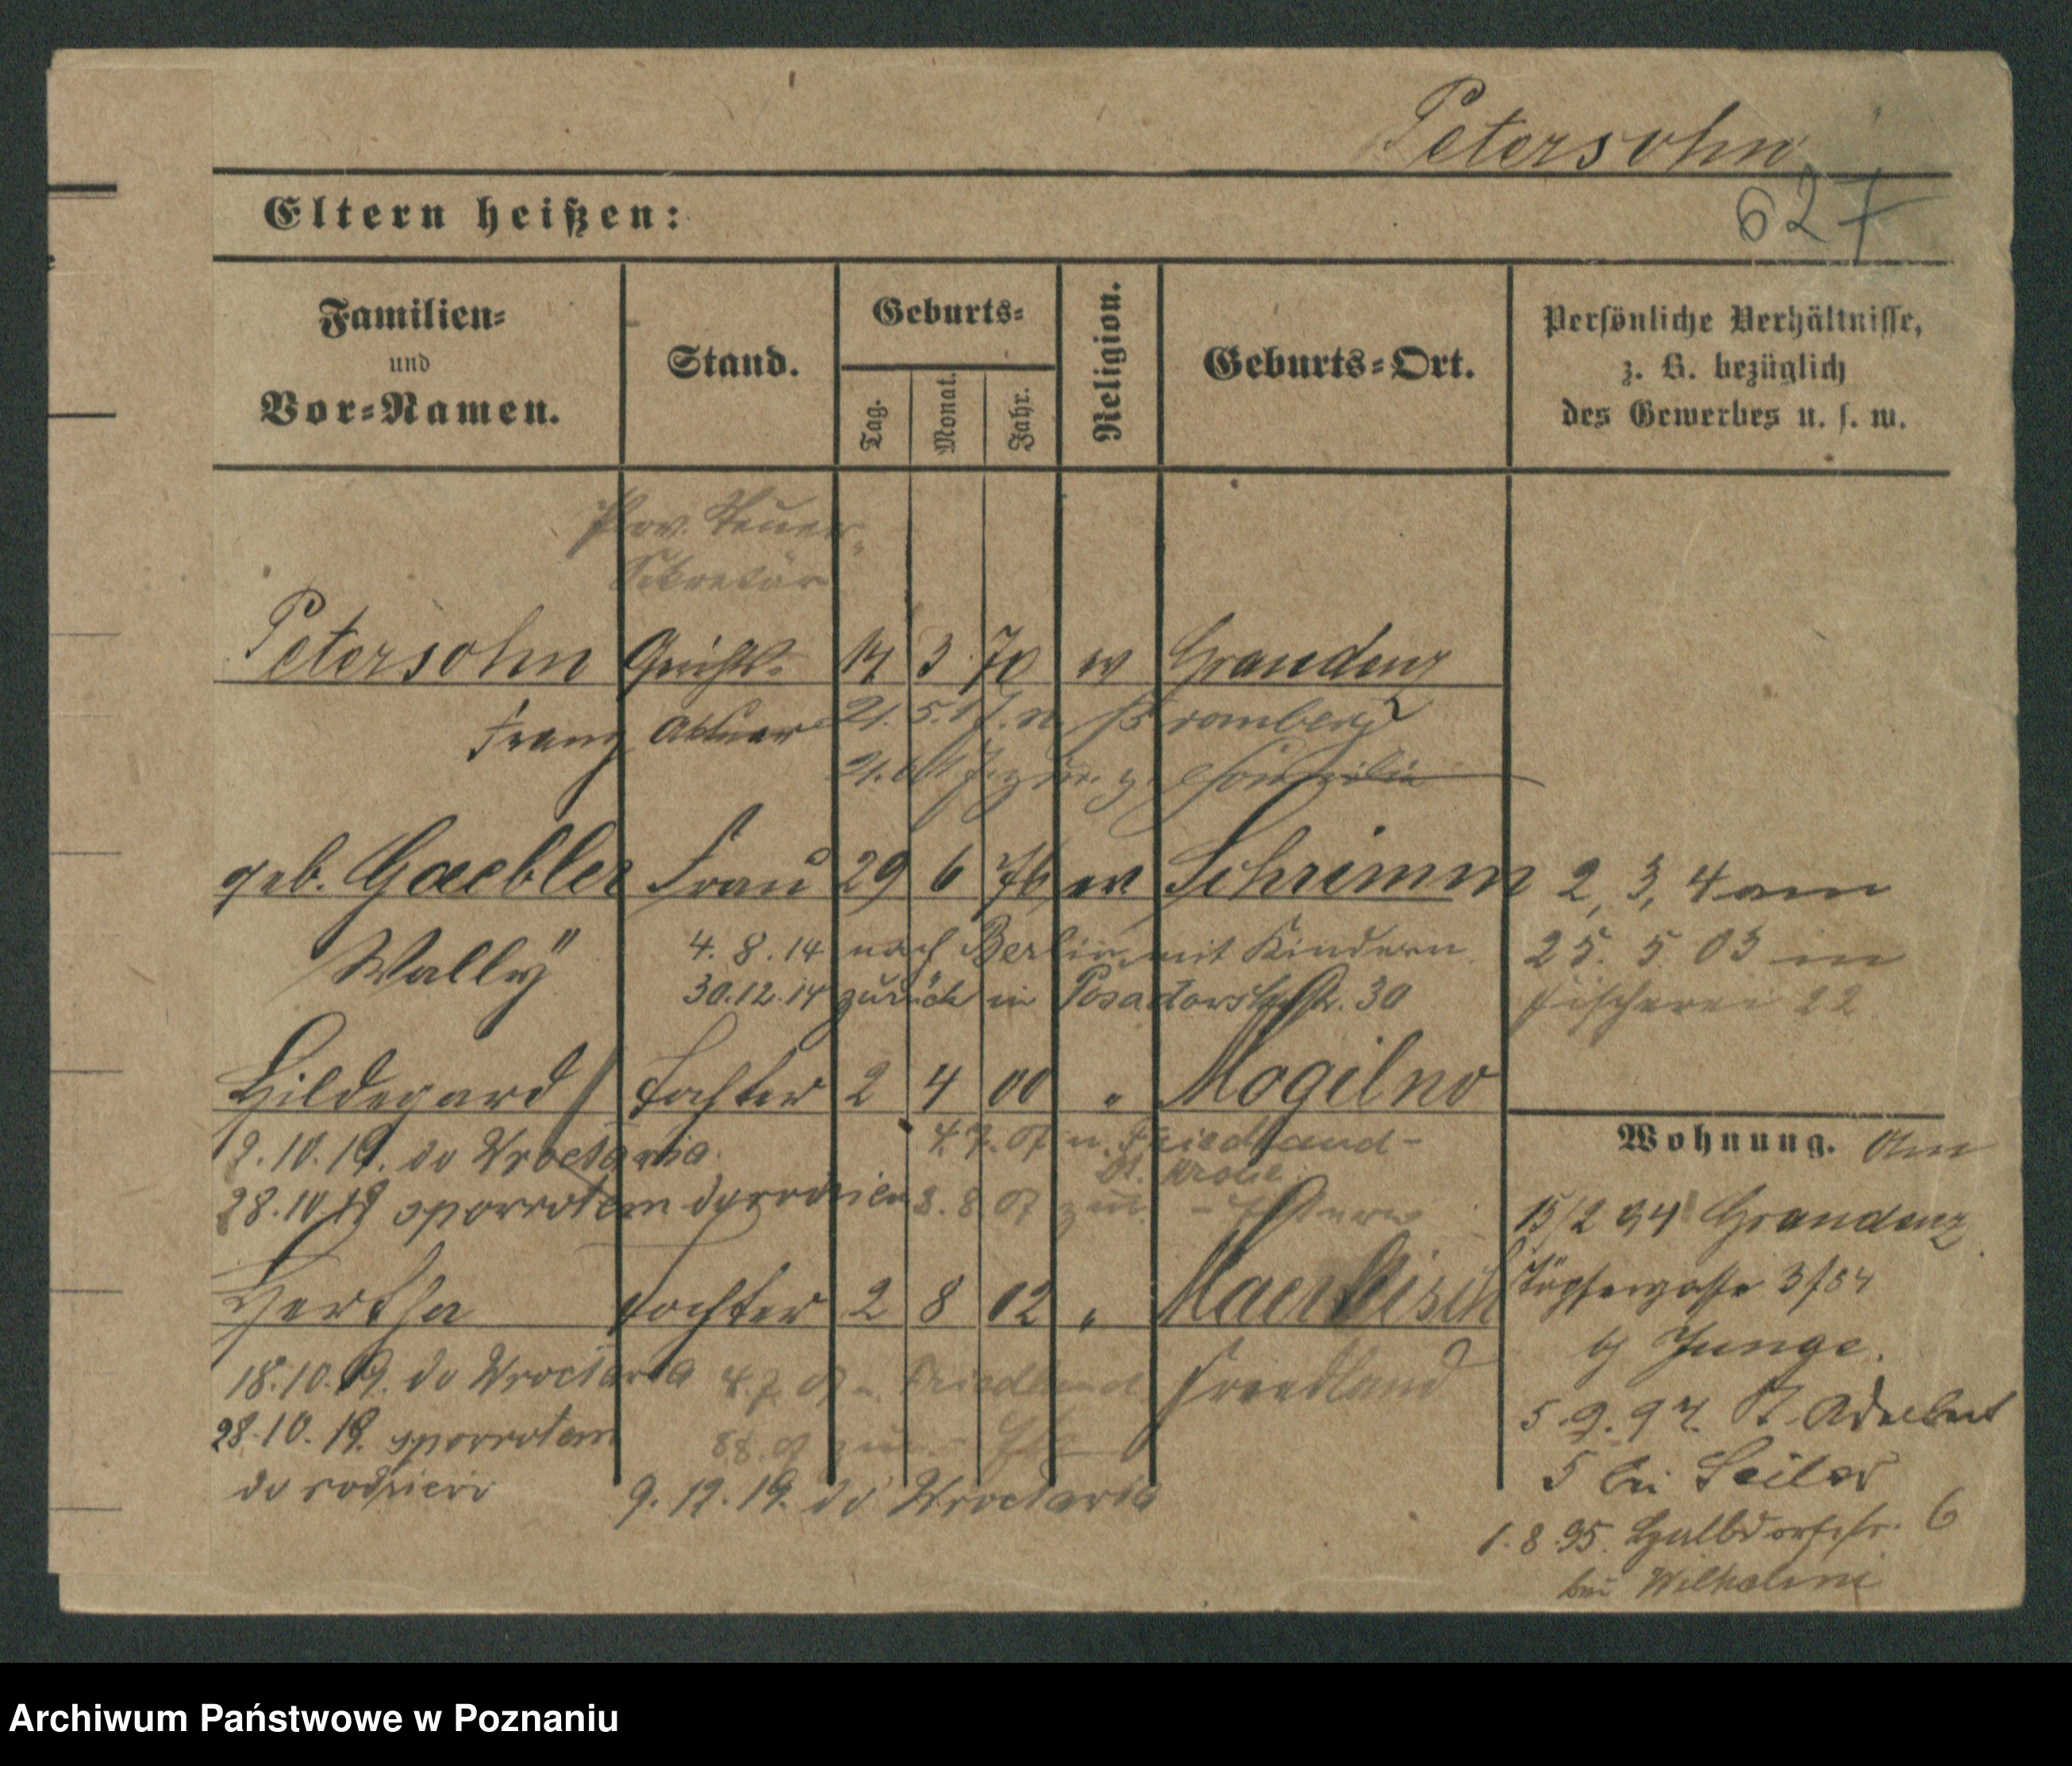 Petersohn
627
Eltern heißen:
Familien=
und
Vor=Namen.
Stand.
Geburts=
Tag.
Monat.
Jahr.
Religion.
Geburts=Ort.
Persönliche Verhältnisse,
z. B. bezüglich
des Gewerbes u. s. w.
Prov. Steuer-
Sekretär
Petersohn Gerichts- 14 3 70 ev Graudenz
Franz Aktuar 21. 5. 17. n. Bromberg
geb. Gaebler Frau 29 6 76 ev Schrimm
Wally
4. 8. 14 nach Berlin mit Kindern.
30.12.14 zurück in Posadowskystr. 30
2, 3, 4 am
25. 5 03 in
Fischerei 22
Hildegard Tochter 2 4 00 " Mogilno
12.10.19. do Wrocławia.
4.7.07 n. Friedland-
28.10.19 spowrotem do rodziców
8.8.07 zur.
Hertha Tochter 2 8 02 " Maerkisch
Friedland
18.10.19. do Wrocławia 4.7.07 n. Friedland
28.10.19. spowrotem
do rodziców
9.12.19. do Wrocławia
Wohnung. Am
15/2 94 Graudenz
Töpfergasse 3/84
b/ Junge.
5.9.94. St. Adalbert
5 bei Seiler
1.8.95. Halbdorfstr. 6
bei Wilhelmi
Archiwum Państwowe w Poznaniu